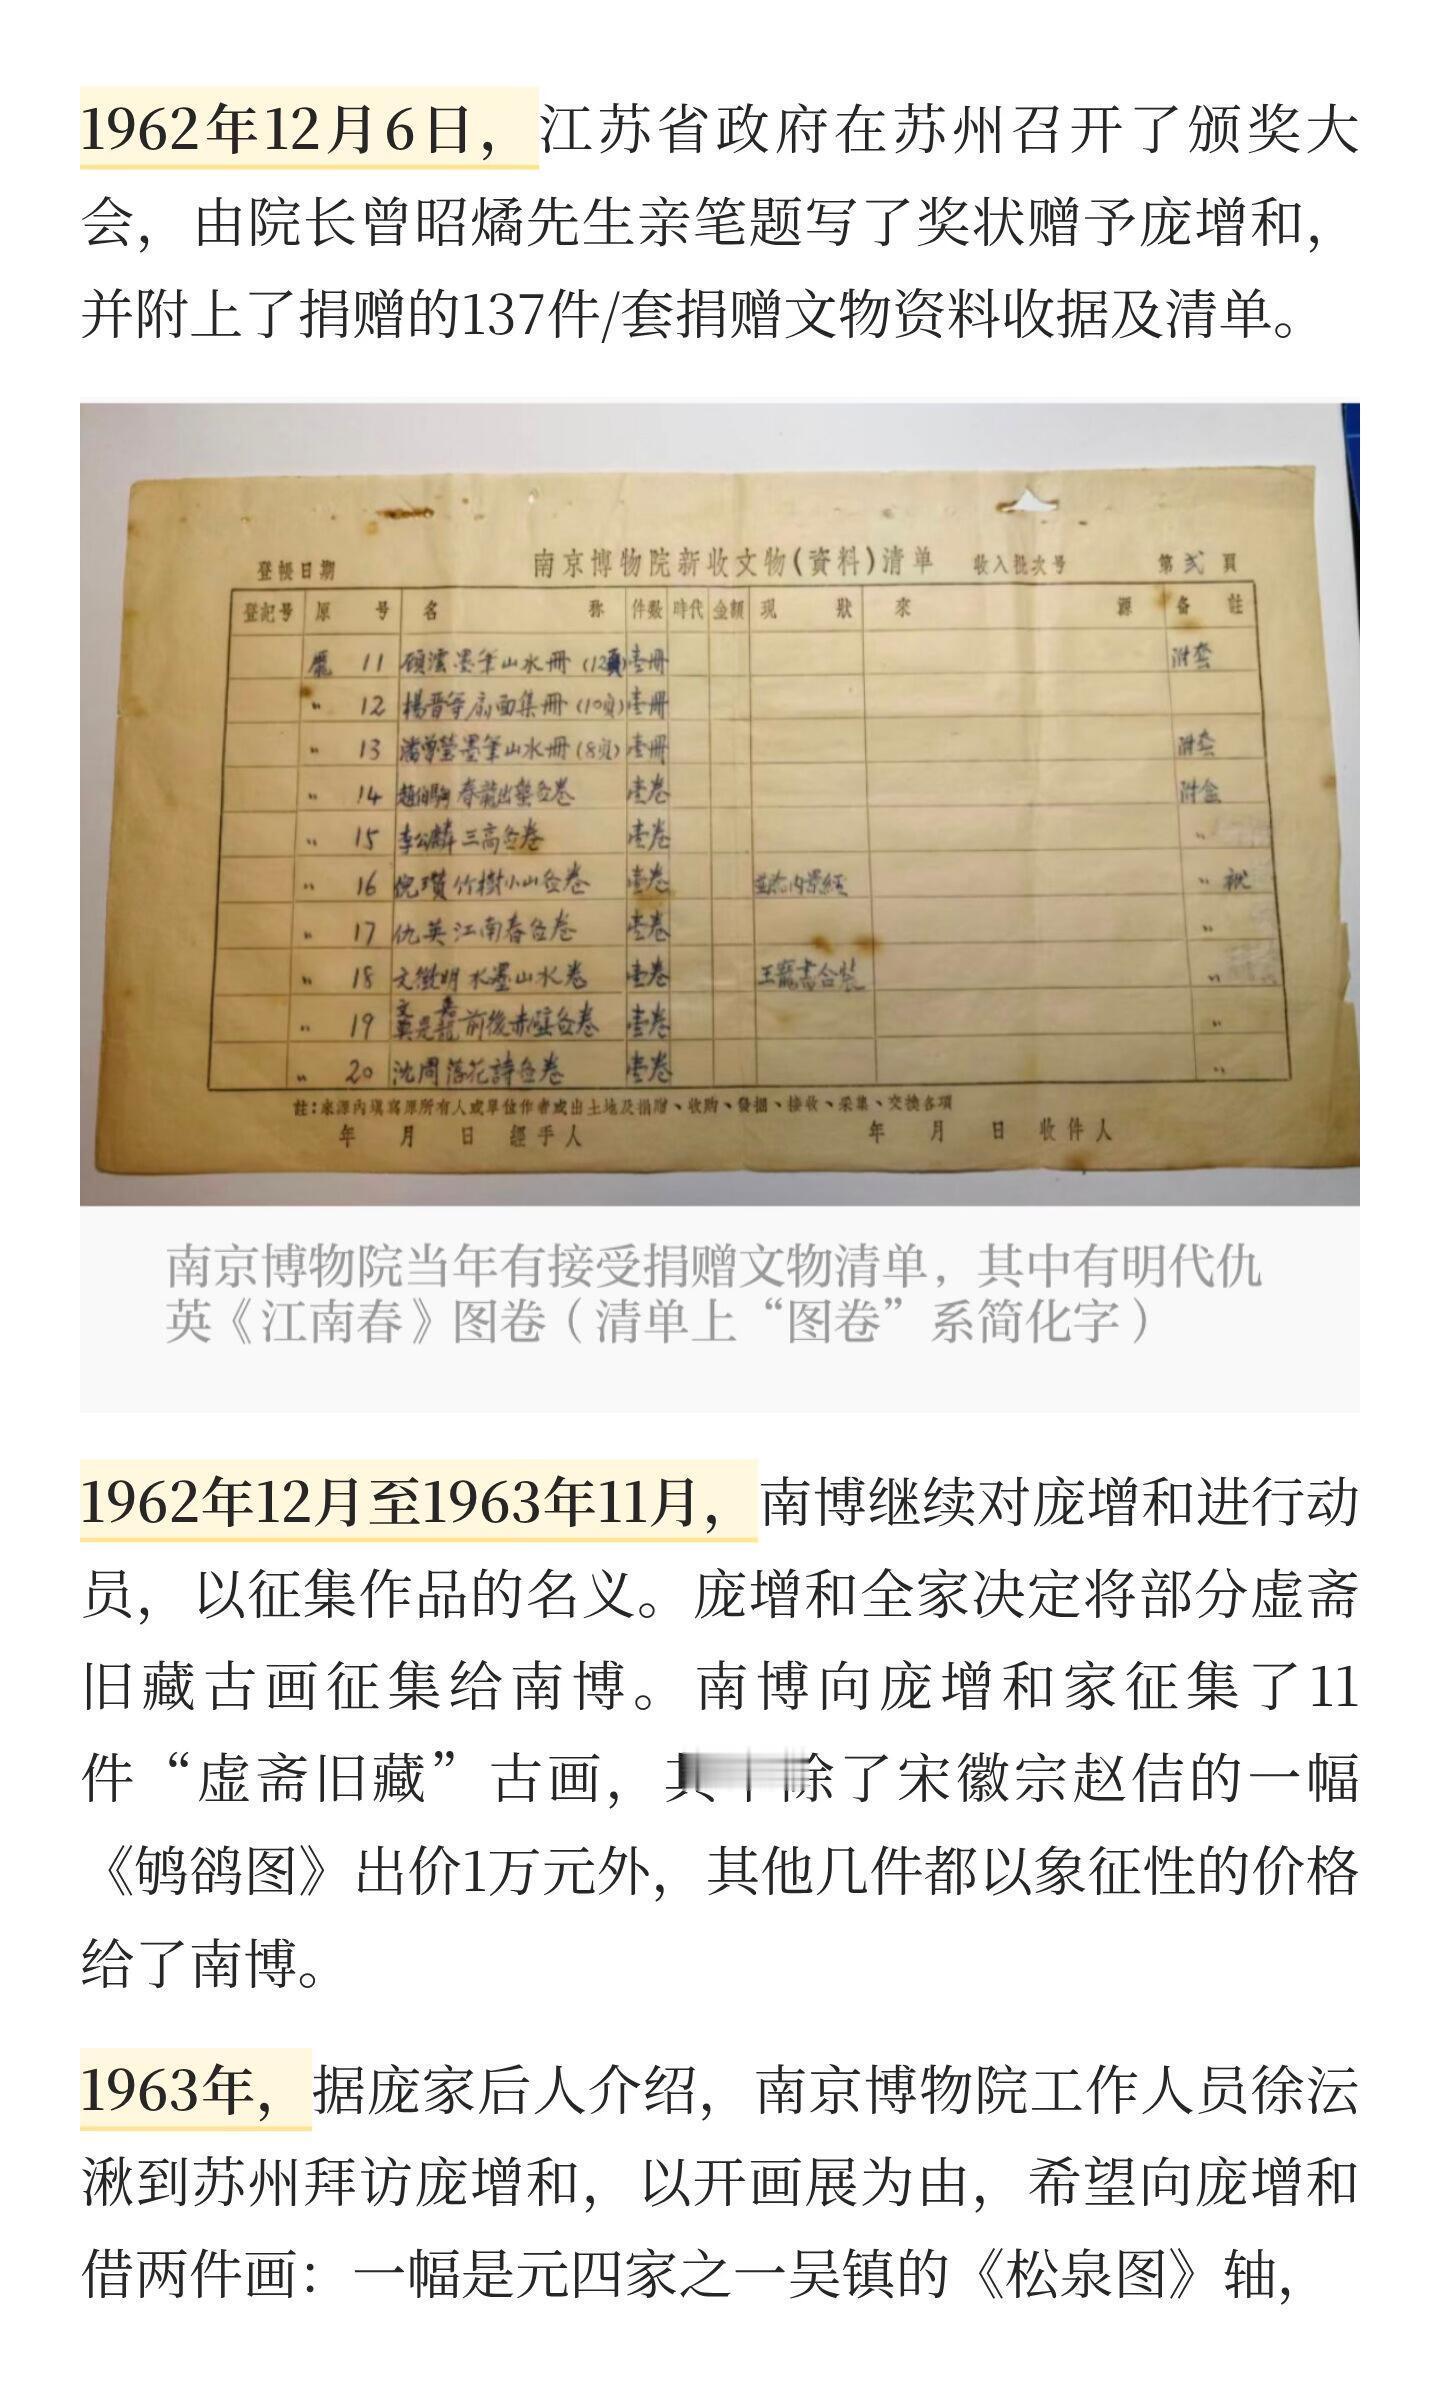 1962年12月6日，江苏省政府在苏州召开了颁奖大
会，由院长曾昭燏先生亲笔题写了奖状赠予庞增和，
并附上了捐赠的137件/套捐赠文物资料收据及清单。
登帳日期 南京博物院新收文物(資料)清单 收入批次号 第弍頁
登記号 原号 名称 件数 時代 金額 現狀 來源 备註
龐 11 顾澐墨笔山水冊(12頁) 壹冊 附套
〃 12 楊晋等扇面集冊(10頁) 壹冊
〃 13 潘曾瑩墨筆山水冊(8頁) 壹冊 附套
〃 14 趙伯駒春龍出蟄图卷 壹卷 附盒
〃 15 李公麟三高图卷 壹卷 〃
〃 16 倪瓚竹樹小山图卷 壹卷 〃
〃 17 仇英江南春图卷 壹卷 〃
〃 18 文徵明水墨山水卷 壹卷 王寵書合裝 〃
〃 19 文嘉莫是龍前後赤壁图卷 壹卷 〃
〃 20 沈周落花詩图卷 壹卷 〃
註：來源內填寫原所有人或單位作者或出土地及捐贈、收购、發掘、接收、采集、交换各項
年 月 日 經手人 年 月 日 收件人
南京博物院当年有接受捐赠文物清单，其中有明代仇
英《江南春》图卷（清单上“图卷”系简化字）
1962年12月至1963年11月，南博继续对庞增和进行动
员，以征集作品的名义。庞增和全家决定将部分虚斋
旧藏古画征集给南博。南博向庞增和家征集了11
件“虚斋旧藏”古画，除了宋徽宗赵佶的一幅
《鸲鹆图》出价1万元外，其他几件都以象征性的价格
给了南博。
1963年，据庞家后人介绍，南京博物院工作人员徐沄
湫到苏州拜访庞增和，以开画展为由，希望向庞增和
借两件画：一幅是元四家之一吴镇的《松泉图》轴，